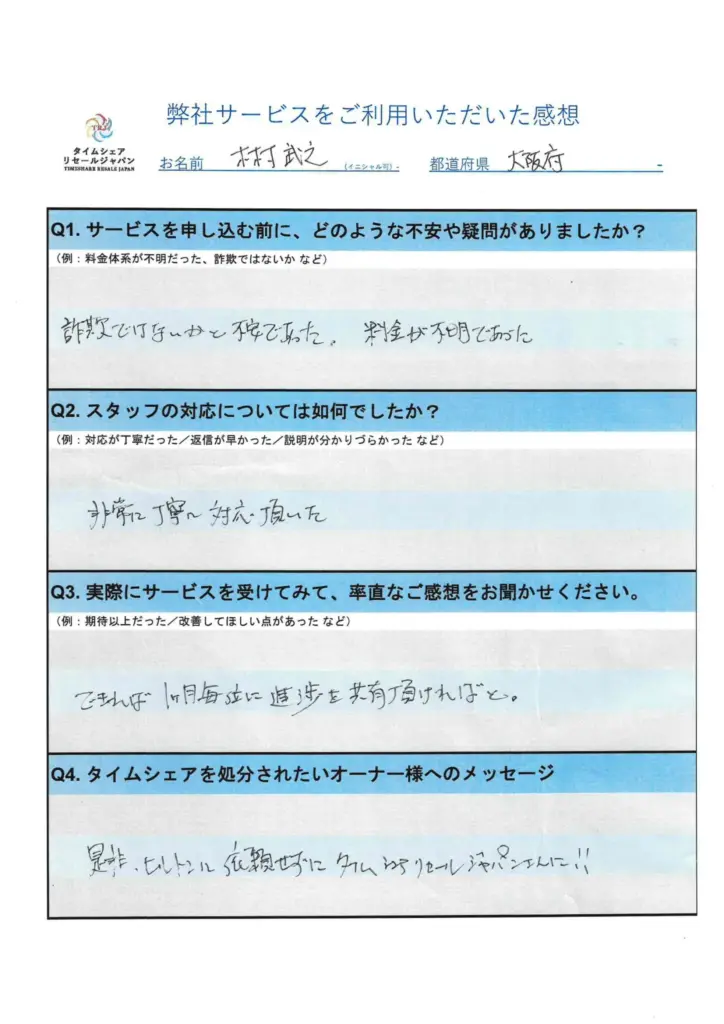 弊社サービスをご利用いただいた感想
TRJ
タイムシェア
リセールジャパン
TIMESHARE RESALE JAPAN
お名前 木村武之 (イニシャル可)-
都道府県 大阪府 -
Q1. サービスを申し込む前に、どのような不安や疑問がありましたか？
（例：料金体系が不明だった、詐欺ではないか など）
詐欺ではないかと不安であった。料金が不明であった
Q2. スタッフの対応については如何でしたか？
（例：対応が丁寧だった／返信が早かった／説明が分かりづらかった など）
非常に丁寧に対応頂いた
Q3. 実際にサービスを受けてみて、率直なご感想をお聞かせください。
（例：期待以上だった／改善してほしい点があった など）
できれば1ヶ月毎位に進渉を共有頂ければと。
Q4. タイムシェアを処分されたいオーナー様へのメッセージ
是非、ヒルトンに依頼せずにタイムシェアリセールジャパンさんに!!